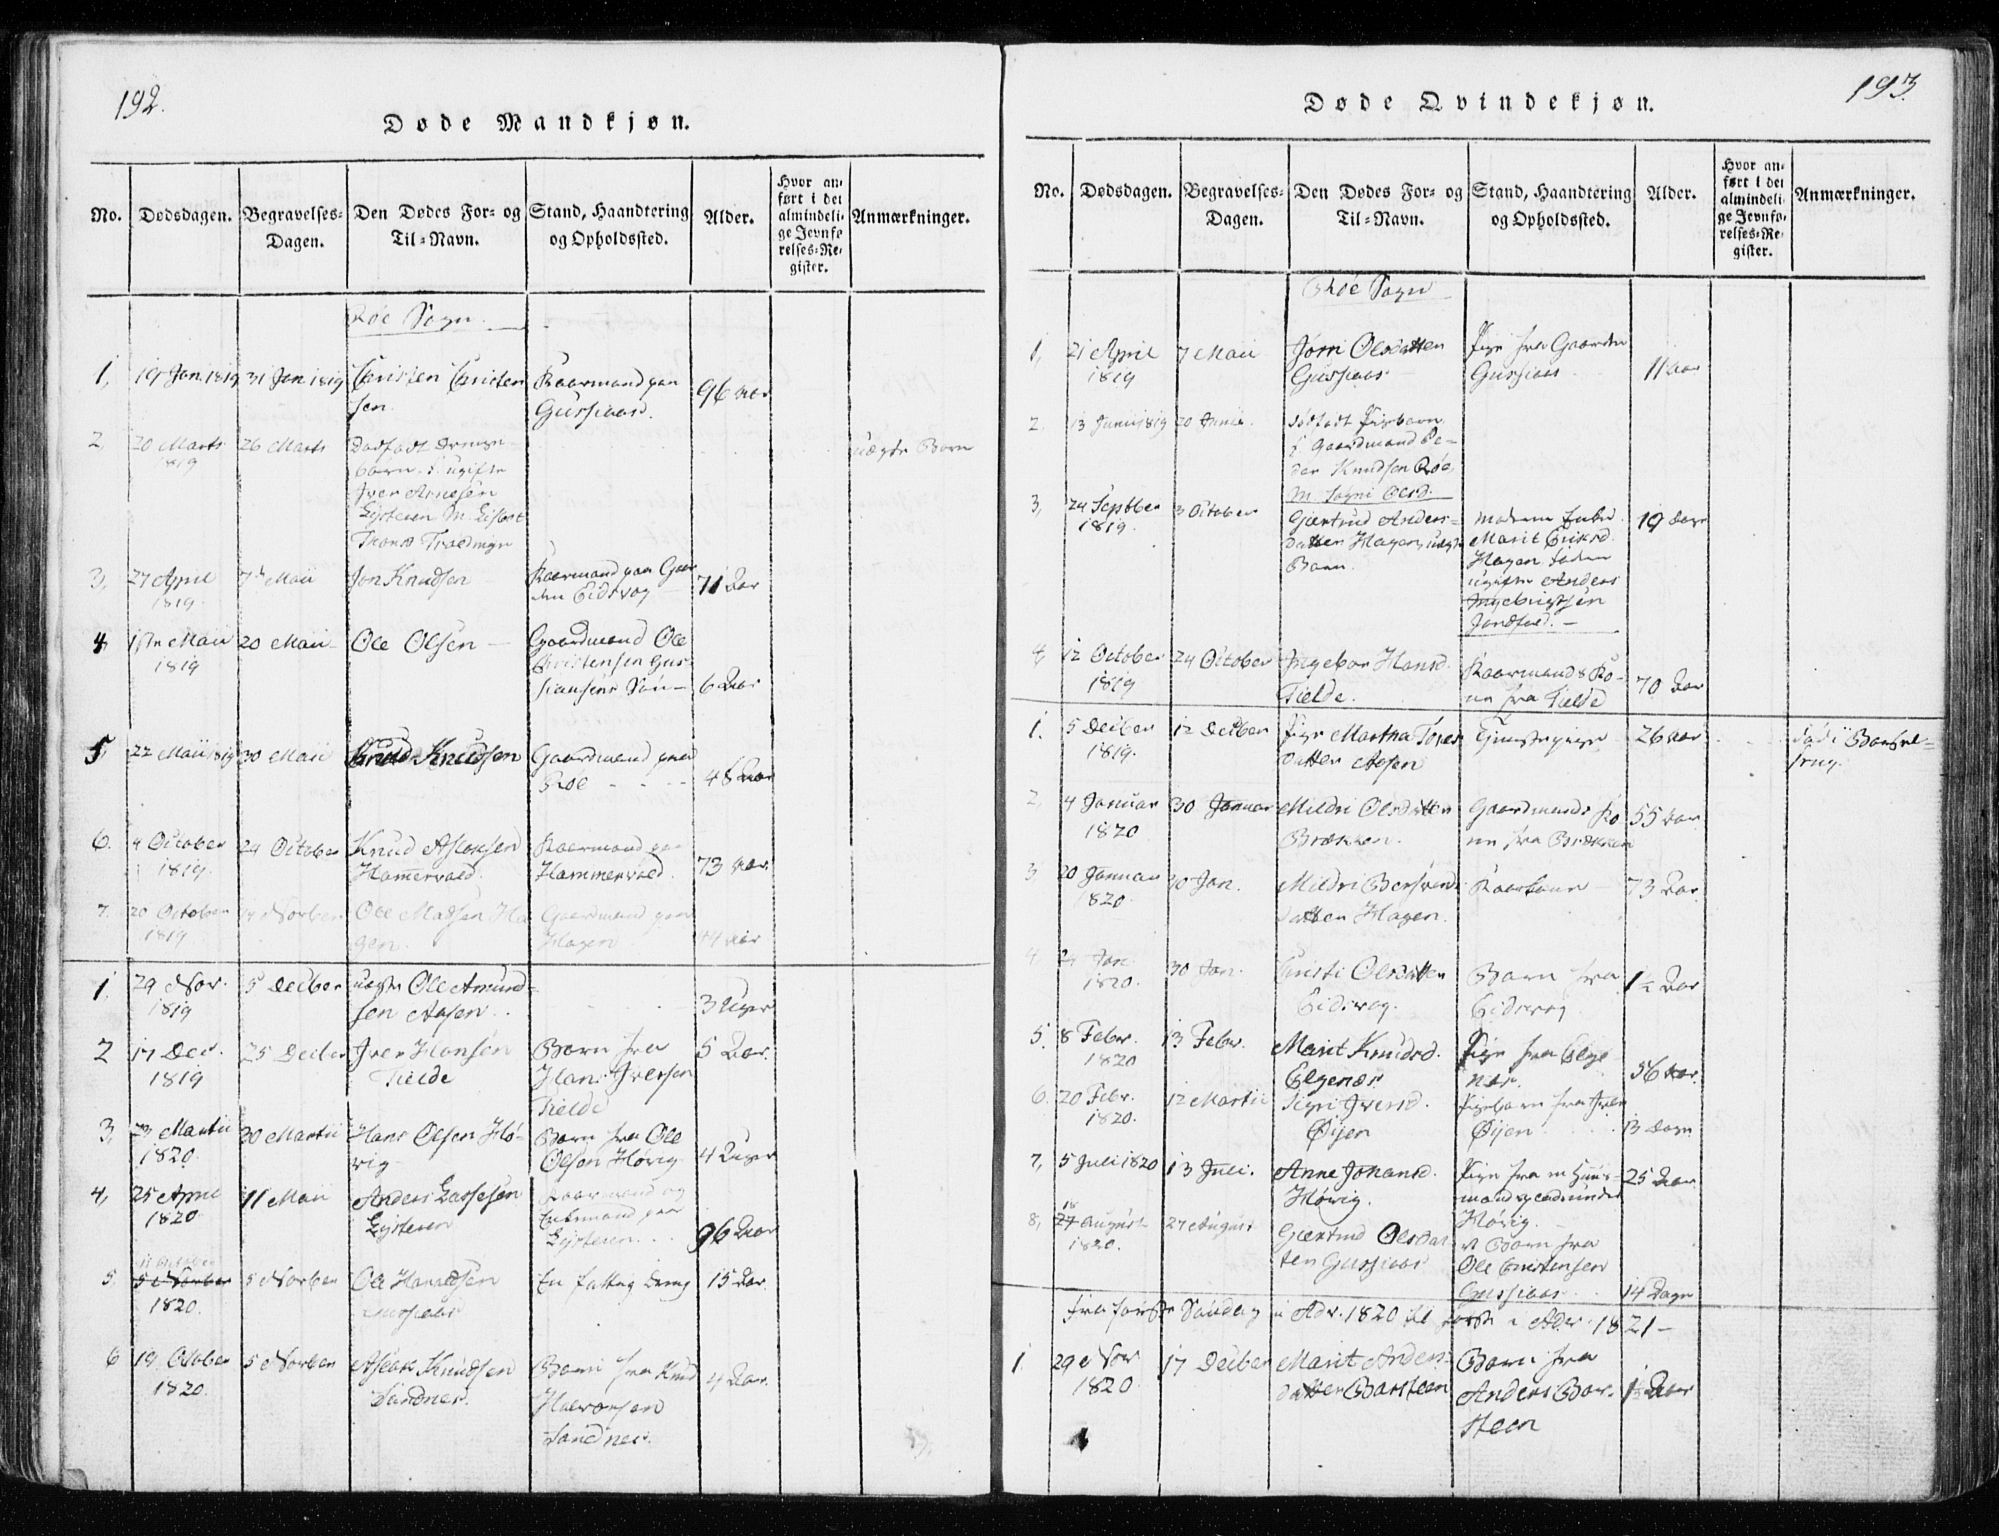 192.
Døde Mandkjøn.
No. Dødsdagen. Begravelses-Dagen. Den Dødes For- og Til-Navn. Stand, Haandtering og Opholdssted. Alder. Hvor anført i det almindelige Jevnførelses-Register. Anmærkninger.
Røe Sogn
1, 19 Jan 1819 31 Jan 1819 Christen Christen
sen. Kaarmand paa
Gussiaas. 96 aar
2, 20 Marts
1819 26 Marts Dødfødt Drenge-
barn. ugifte
Iver Arnesen
M. Lisbet
uægte Barn
3, 27 April
1819. 7de Maii Jon Knudsen Kaarmand paa Gaar
den Eidsvog 71 Aar
4, Maii
1819 20 Maii Ole Olsen — Gaardmand Ole
Christensen Gus-
siaasens Søn — 6 Aar
5, 22 Maii 1819 30 Maii Knud Knudsen Gaardmand paa
Røe 48 Aar
6. 4 October
1819. 24 October Knud Aslaksen
Hammervold. Kaarmand paa
Hammervold. 73 aar.
7. 20 October
1819 14 Novber Ole Madsen Ha
gen. Gaardmand paa
Hagen 44 aar
1. 29 Nov.
1819 5 Decber uægte Ole Amund-
sen Aasen. 3 Uger
2 17 Dec.
1819 25 Decber Iver Hansen
Tielde Barn fra
Hans Iversen
Tielde 5 Aar.
3, 23 Martii
1820. 30 Martii Hans Olsen Hø-
vig Barn fra Ole
Olsen Høvig 4 Uger
4, 25 April
1820 11 Maii Anders Lassesen
Kaarmand og
Enkemand paa
96 Aar
5. 11 October
5 Novber
1820. 5 Novber Ole Haraldsen
Gussiaas En fattig Dreng 15 Aar.
6 19 October
1820. 5 Novber Aslak Knudsen
Sandnes. Barn fra Knud
Halvorsen
Sandnes. 4 Aar.
193.
Døde Qvindekjøn.
No. Dødsdagen. Begravelses-Dagen. Den Dødes For- og Til-Navn. Stand, Haandtering og Opholdssted. Alder. Hvor anført i det almindelige Jevnførelses-Register. Anmærkninger.
Røe Sogn
1, 21 April
1819 7 Maii Jorri Olsdatter
Gussiaas Pige fra Gaarden
Gussiaas 11 aar
2. 13 Junii 1819 20 Junii. dødfødt Pigebarn
f. Gaardmand Pe-
der Knudsen Røe,
M. Sigri Olsd.
3, 24 Septber
1819. 3 October Giertrud Anders-
datter Hagen, uægte
Barn. Moderen Enke
Marit Eriksd.
Hagen. Faderen
ugifte Anders
Ingebrigtsen
19 Dage
4, 12 October
1819 24 October Ingebor Hansd.
Tielde. Kaarmands Ko-
ne fra Tielde 70 Aar
1. 5 Decber
1819. 12 Decber Pige Martha Tores
datter Aasen Tienstepige 26 aar død i Barsel-
seng.
2, 4 Januar
1820 30 Januar Mildri Olsdatter
Brækken. Gaardmands Ko
ne fra Brækken 55 aar
3 20 Januar
1820. 30 Jan. Mildri Bersvend
datter Hagen. Kaarkone 73 Aar.
4 21 Jan
1820. 30 Jan. Christi Olsdatter
Eidsvog. Barn fra
Eidsvog 1½ Aar
5. 8 Febr.
1820 13 Febr. Marit Knudsd.
Elgenæs Pige fra Elge
næs. 56 aar.
6. 20 Febr.
1820. 12 Martii Sigri Iversd.
Øijen Pigebarn fra Iver
Øijen 13 Dage
7, 5 Juli 1820 13 Juli. Anne Johansd.
Høvig. Pige fra en Huus-
mandsplads under
Høvig. 25 Aar
8, 18
27 August
1820. 27 August Giertrud Olsdat
ter Gussiaas et Barn fra
Ole Christensen
Gussiaas 14 Dage
Fra første Søndag i Adv. 1820 til første i Adv. 1821—
1. 29 Nov
1820. 17 Decber Marit Anders-
datter Barsteen Barn fra
Anders Bar-
steen 1½ Aar